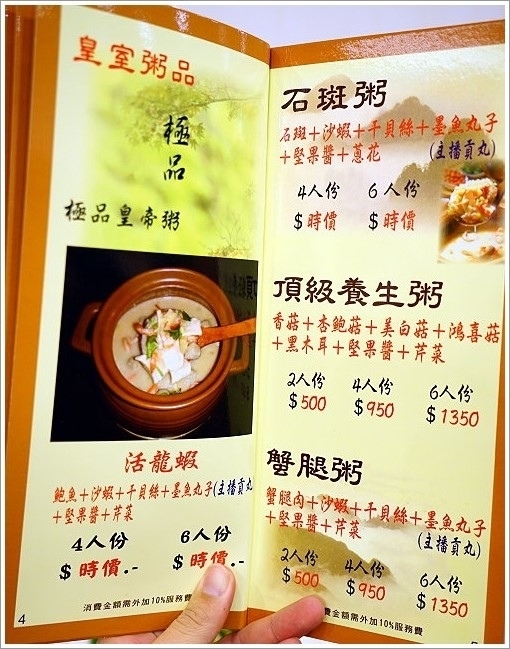 皇室粥品
極品
極品皇帝粥
活龍蝦
鮑魚+沙蝦+干貝絲+墨魚丸子(主播貢丸
+堅果醬+芹菜
4人份 6人份
$時價.- $時價.-
消費金額需外加10%服務費
4
石斑粥
石斑+沙蝦+干貝絲+墨魚丸子
+堅果醬+蔥花 (主播貢丸)
4人份 6人份
$時價 $時價
頂級養生粥
香菇+杏鮑菇+美白菇+鴻喜菇
+黑木耳+堅果醬+芹菜
2人份 4人份 6人份
$500 $950 $1350
蟹腿粥
蟹腿肉+沙蝦+干貝絲+墨魚丸子
+堅果醬+芹菜 (主播貢丸)
2人份 4人份 6人份
$500 $950 $1350
消費金額需外加10%服務費